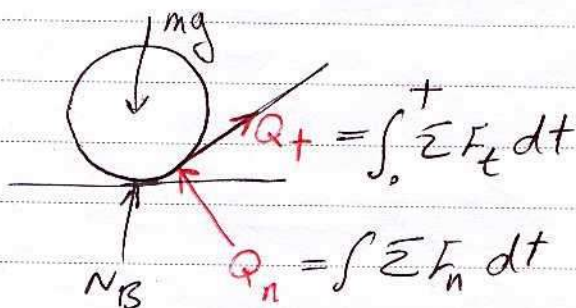 mg
Q_t = ∫₀ᵗ Σ F_t dt
Q_n = ∫ Σ F_n dt
N_B